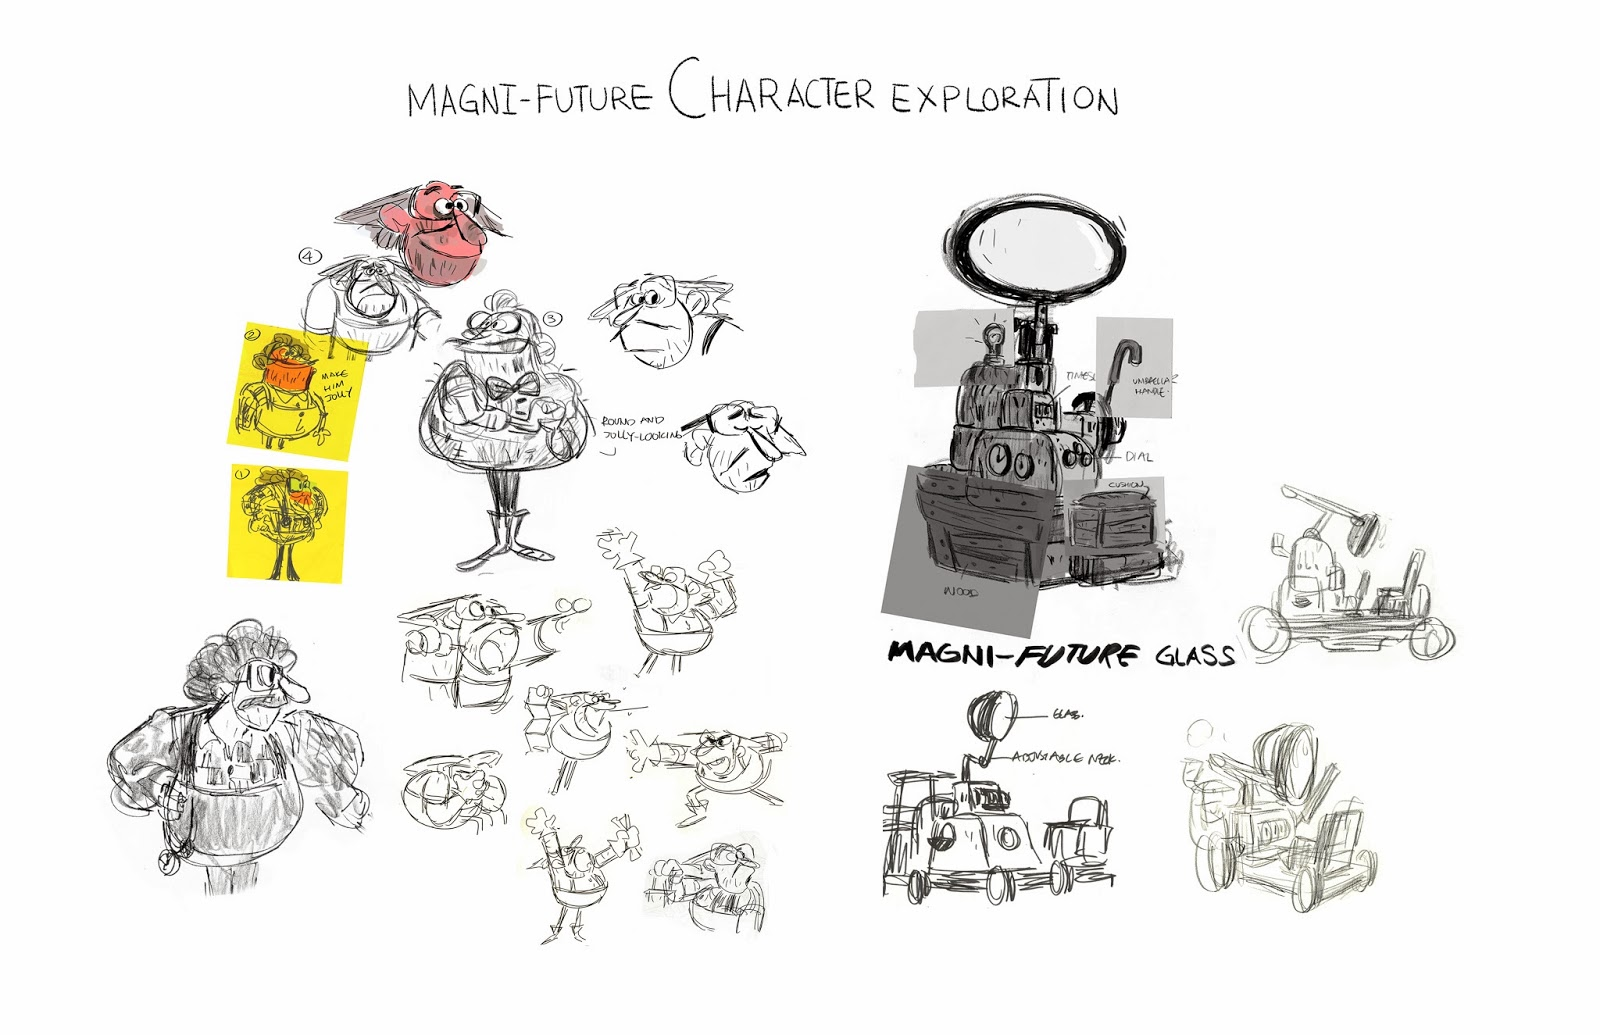 MAGNI-FUTURE CHARACTER EXPLORATION
4
3
2
MAKE
HIM
JOLLY
ROUND AND
JOLLY-LOOKING
1
UMBRELLA
HANDLE.
DIAL
CUSHION
WOOD
MAGNI-FUTURE GLASS
GLASS.
ADJUSTABLE NECK.